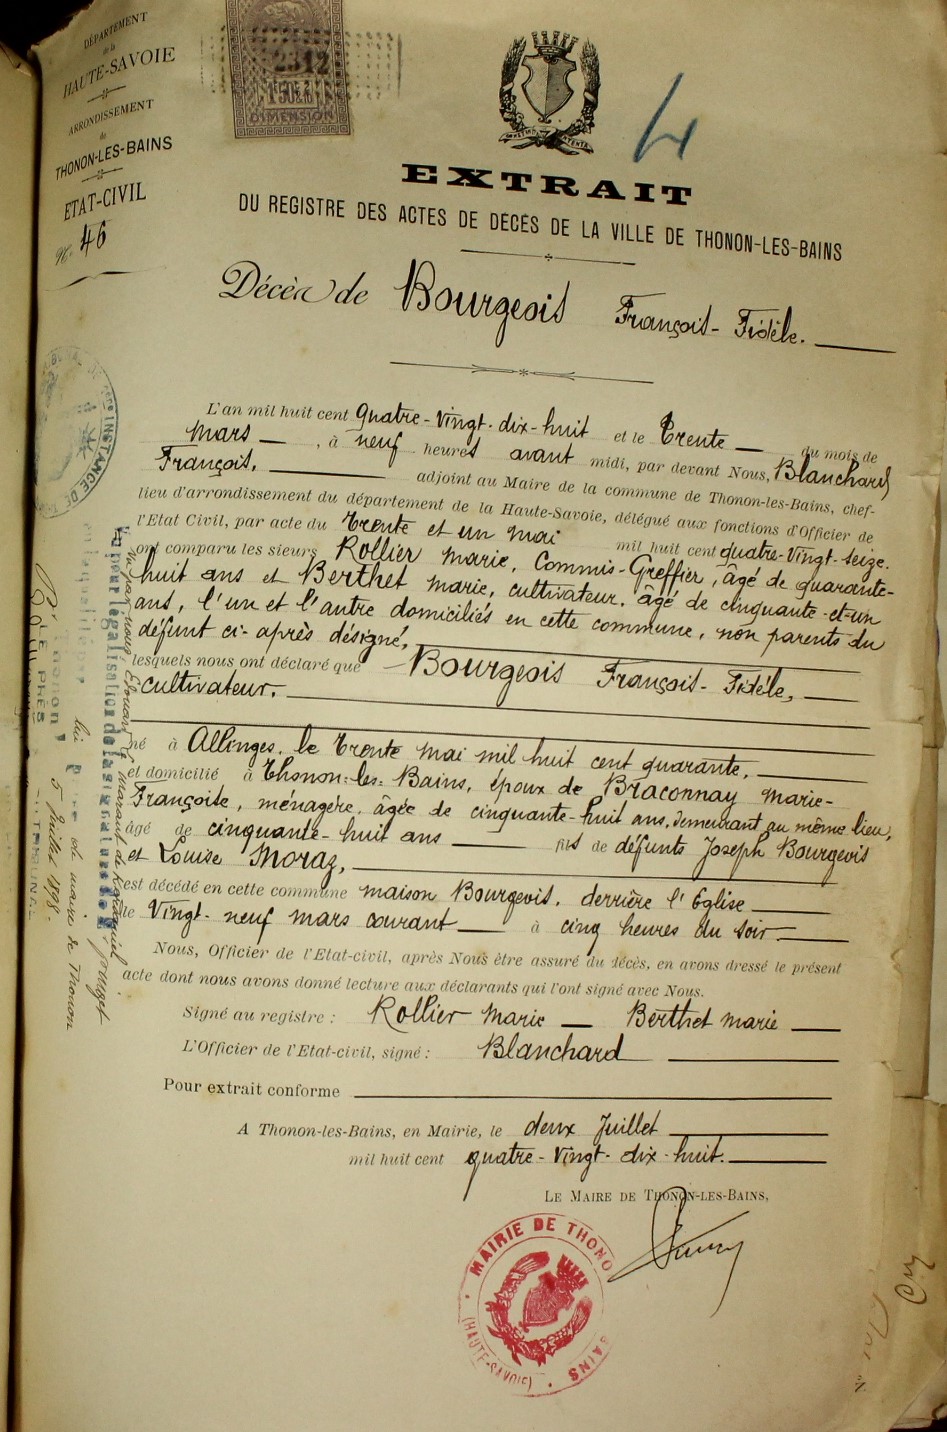 DÉPARTEMENT
de la
HAUTE-SAVOIE
ARRONDISSEMENT
de
THONON-LES-BAINS
ETAT-CIVIL
N° 46
2312
1F50c
DIMENSION
4
EXTRAIT
DU REGISTRE DES ACTES DE DÉCÈS DE LA VILLE DE THONON-LES-BAINS
Décès de Bourgeois François-Fidèle.
L'an mil huit cent quatre-vingt-dix-huit et le trente du mois de
mars, à neuf heures avant midi, par devant Nous, Blanchard
François, adjoint au Maire de la commune de Thonon-les-Bains, chef-
lieu d'arrondissement du département de la Haute-Savoie, délégué aux fonctions d'Officier de
l'Etat Civil, par acte du trente et un mai mil huit cent quatre-vingt-seize.
ont comparu les sieurs Rollier Marie, Commis-Greffier, âgé de quarante-
huit ans et Berthet Marie, cultivateur, âgé de cinquante-et-un
ans, l'un et l'autre domiciliés en cette commune, non parents du
défunt ci-après désigné,
lesquels nous ont déclaré que Bourgeois François-Fidèle,
cultivateur,
né à Allinges, le trente mai mil huit cent quarante,
et domicilié à Thonon-les-Bains, époux de Braconnay Marie-
Françoise, ménagère, âgée de cinquante-huit ans, demeurant au même lieu,
âgé de cinquante-huit ans fils de défunts Joseph Bourgeois
et Louise Moraz,
est décédé en cette commune maison Bourgeois, derrière l'Eglise
le vingt-neuf mars courant à cinq heures du soir.
Nous, Officier de l'Etat-civil, après Nous être assuré du décès, en avons dressé le présent
acte dont nous avons donné lecture aux déclarants qui l'ont signé avec Nous.
Signé au registre : Rollier Marie Berthet Marie
L'Officier de l'Etat-civil, signé : Blanchard
Pour extrait conforme
A Thonon-les-Bains, en Mairie, le deux Juillet
mil huit cent quatre-vingt-dix-huit.
LE MAIRE DE THONON-LES-BAINS,
MAIRIE DE THONO BAINS
(HAUTE-SAVOIE)
INSTANCE DE
Vu pour légalisation de la signature de
maire de Thonon
5 Juillet 1898